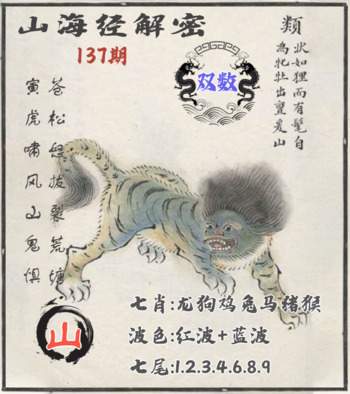 山海经解密
137期
類
狀如狸而有髦自
為牝牡出亶爰山
双数
苍松怒拔裂荒塘
寅虎啸风山鬼惧
山
七肖:龙狗鸡兔马猪猴
波色:红波+蓝波
七尾:1.2.3.4.6.8.9